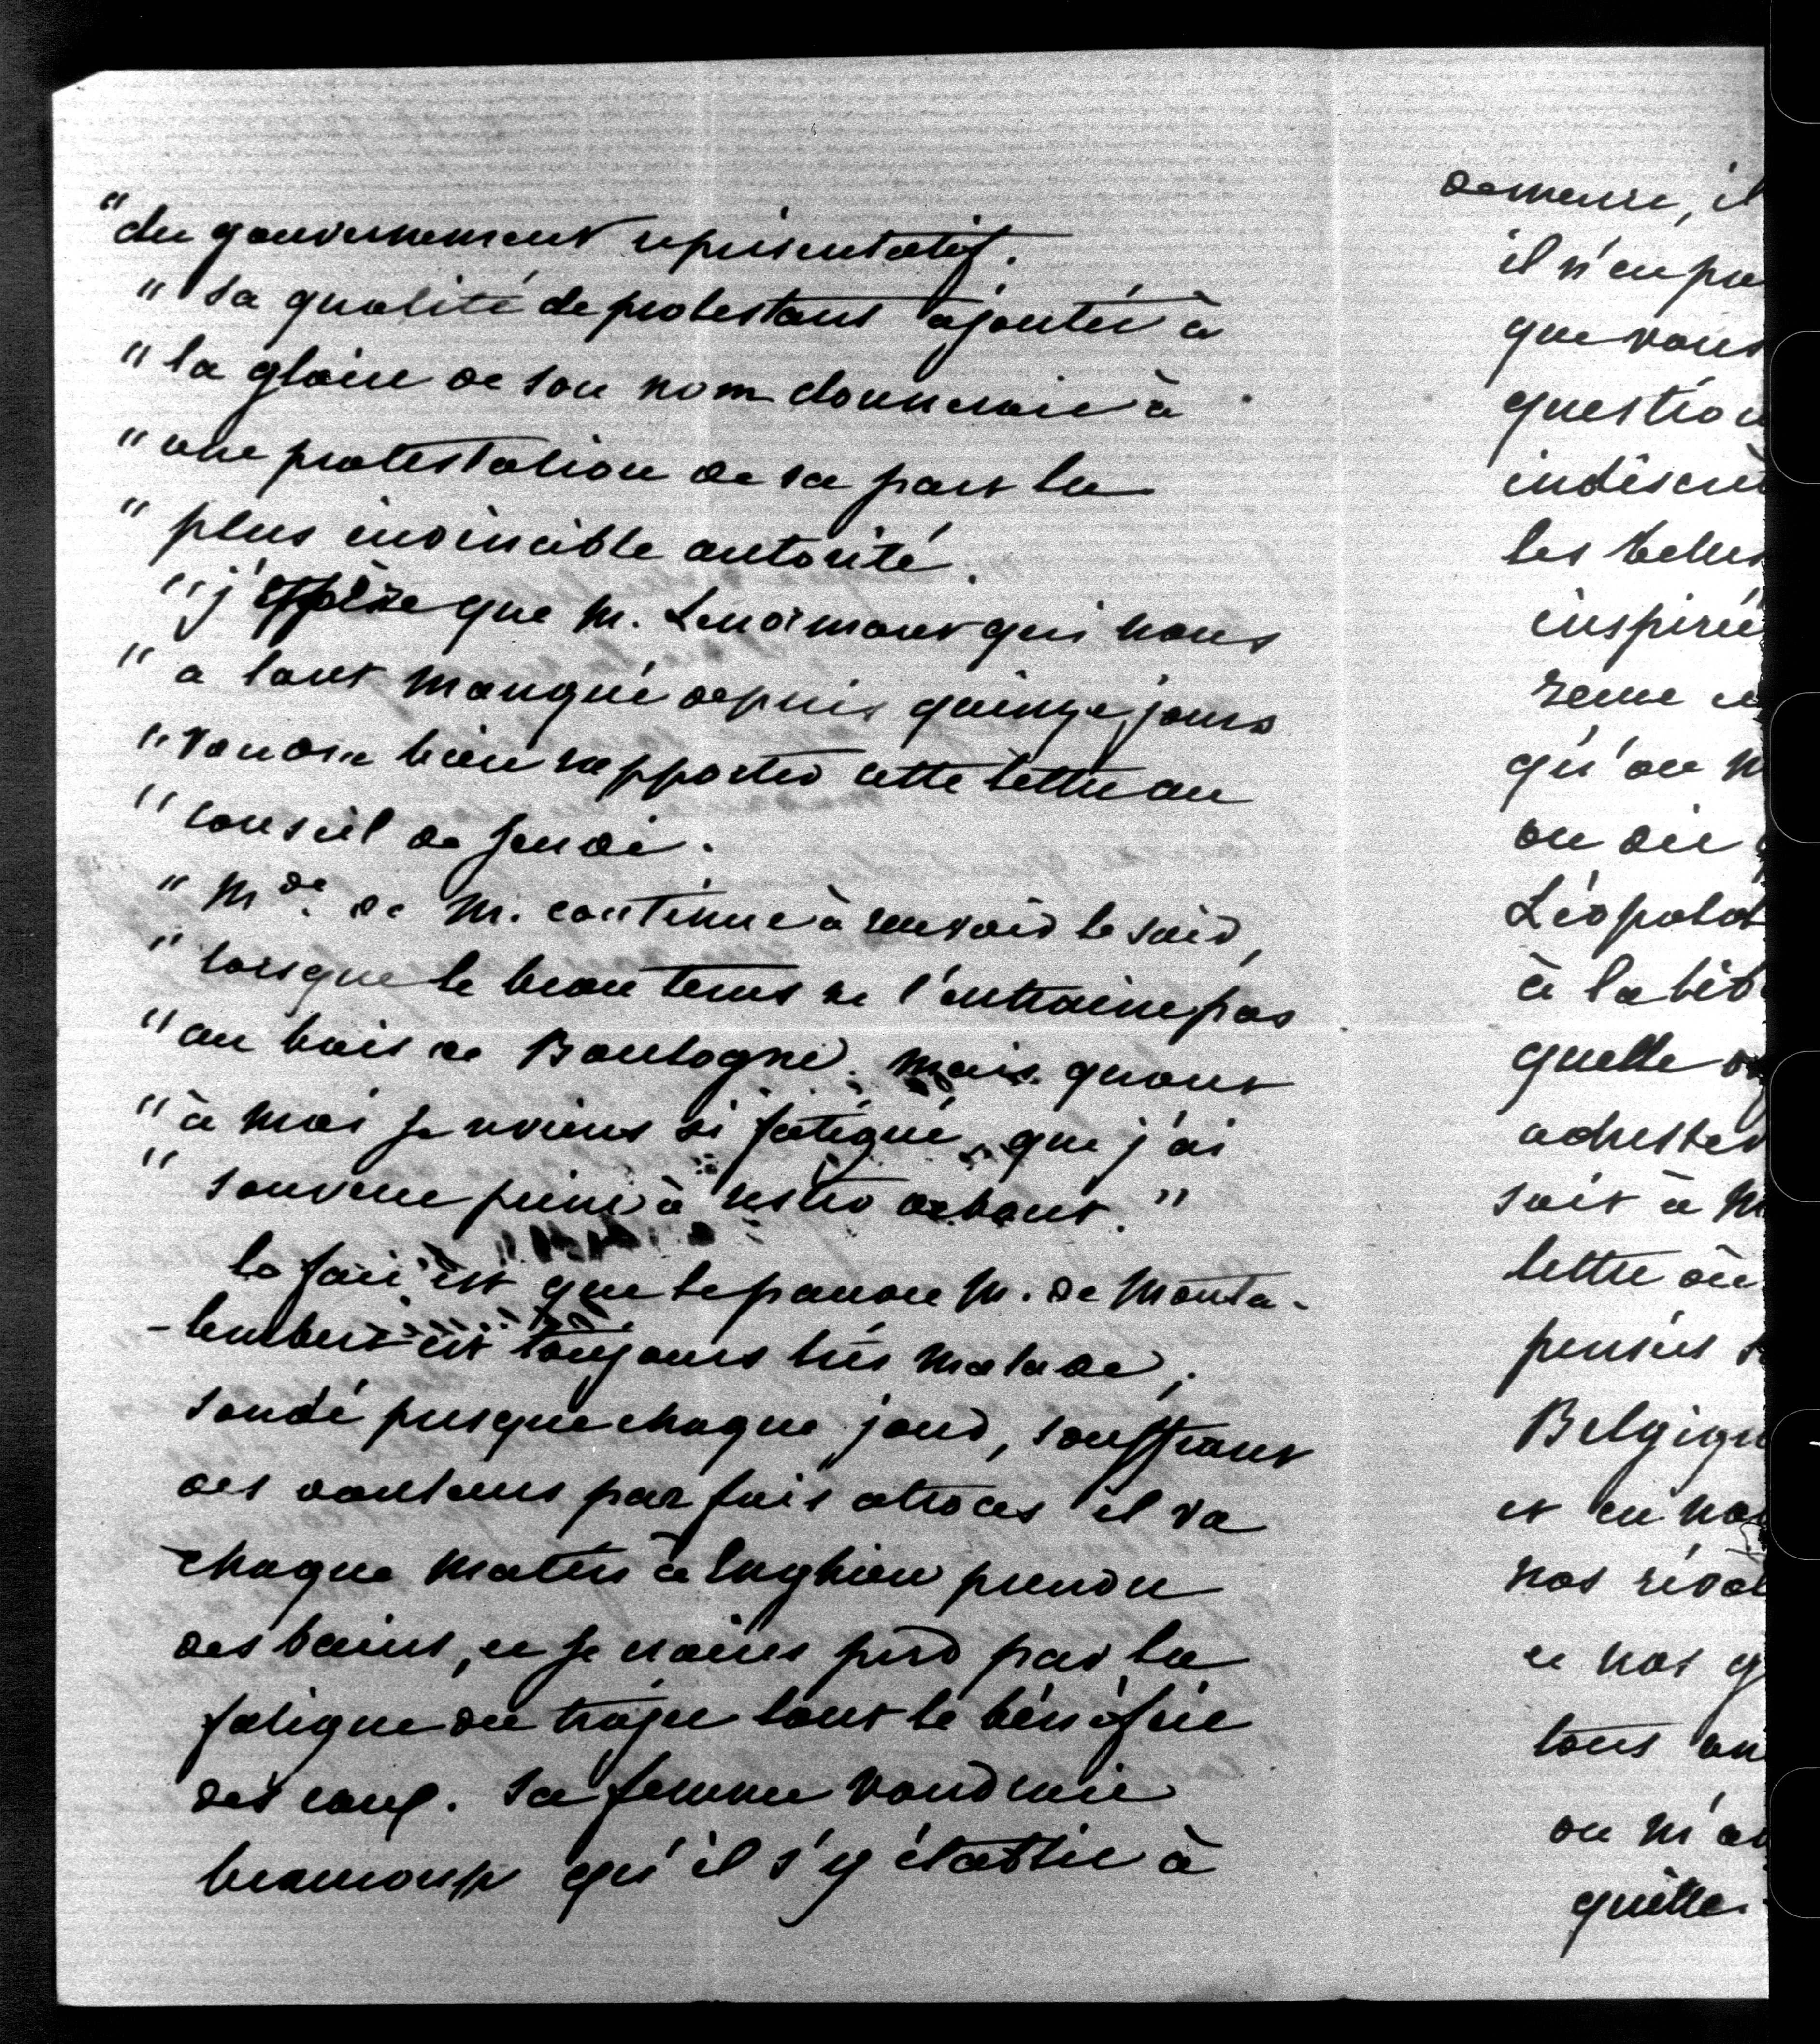 "du gouvernement représentatif.
" Sa qualité de protestant ajoutée à
" la gloire de son nom donnerait à
" une protestation de sa part la
" plus invincible autorité.
" j'espère que M. Lenormant qui nous
" a tant manqué depuis quinze jours
" voudra bien rapporter cette lettre au
" conseil de jeudi.
" Mde. de M. continue à recevoir le soir,
" lorsque le beau tems ne l'entraine pas
" au bois de Boulogne. mais quant
" à moi je reviens si fatigué, que j'ai
" souvent peine à rester debout. "
le fait est que le pauvre M. de Monta-
-lembert est toujours très malade;
sondé presque chaque jour, souffrant
des douleurs parfois atroces il va
chaque matin à Enghien prendre
des bains, et je crains perd par la
fatigue du trajet tout le bénéfice
des eaux. Sa femme voudrait
beaucoup qu'il s'y établit à
demeure, il
il n'en
que vous
question
indiscrè
les belles
inspiré
qu'on
on dit
Léopold
à la
quelle
adresser
soit à
lettre où
pensées
Belgique
et en
nos
et nos
tous
on m'a
qu'elle